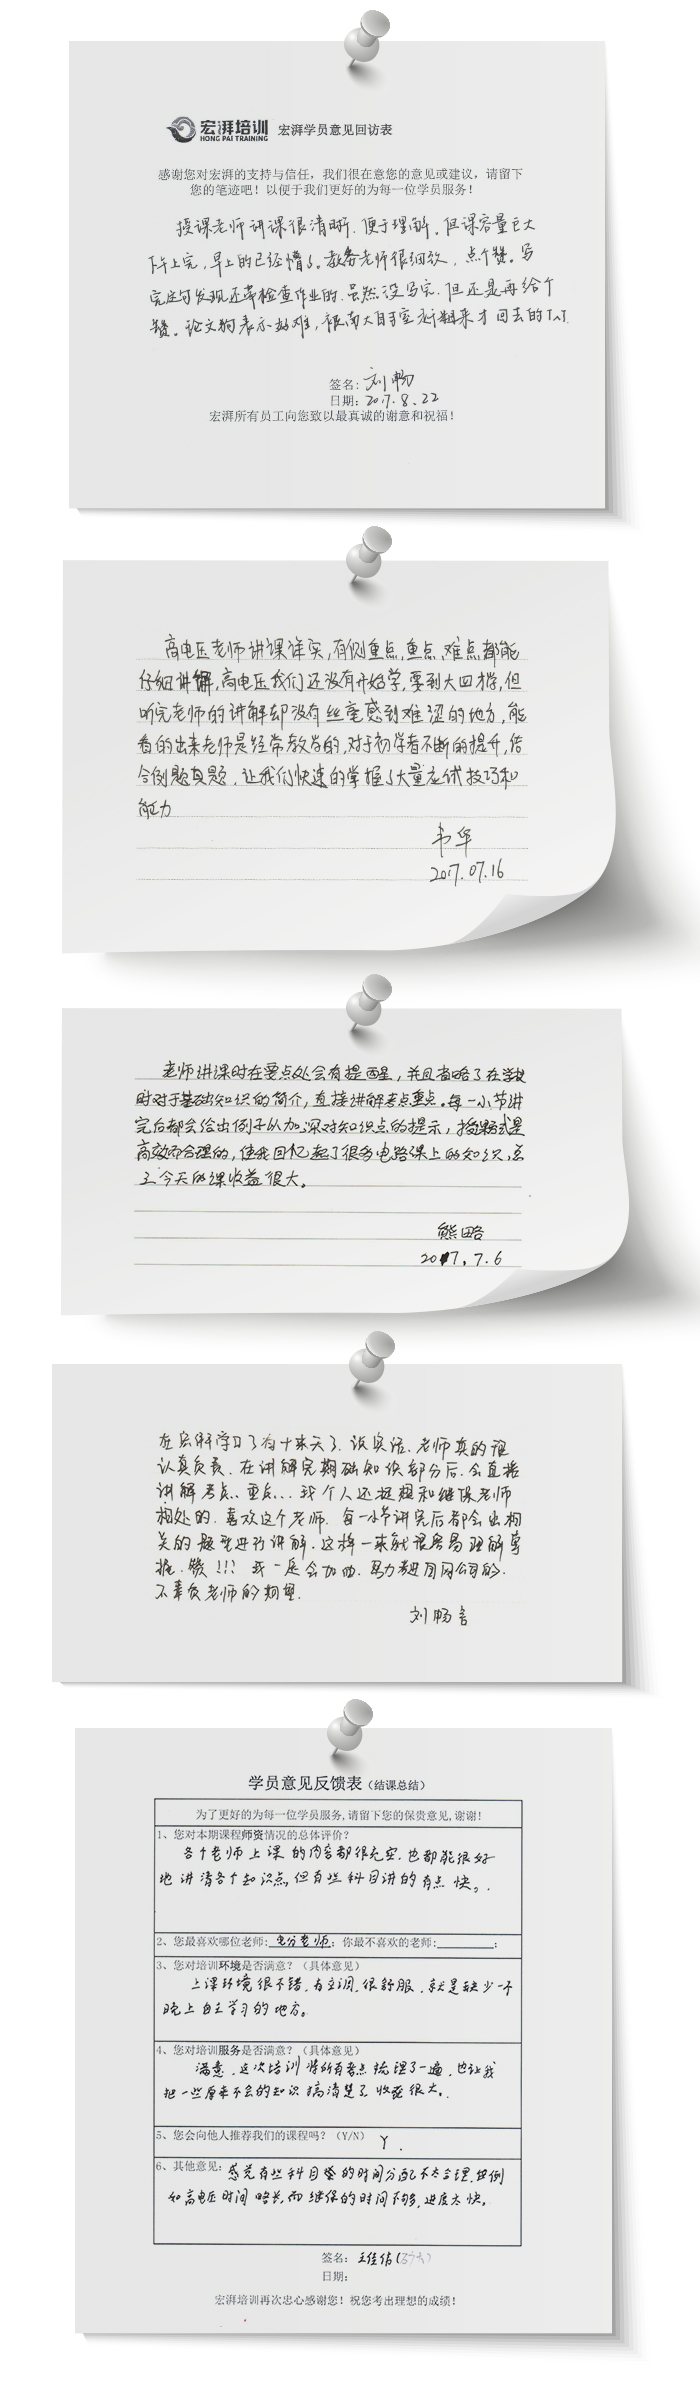 宏湃培训
HONG PAI TRAINING
宏湃学员意见回访表
感谢您对宏湃的支持与信任，我们很在意您的意见或建议，请留下
您的笔迹吧！以便于我们更好的为每一位学员服务！
授课老师讲课很清晰，便于理解。但课容量巨大
下午上完，早上的已经懵了。教务老师很细致，点个赞。写
完庄句发现还带检查作业的，虽然没写完，但还是再给个
赞。论文狗表示好难，
签名：刘畅
日期：2017.8.22
宏湃所有员工向您致以最真诚的谢意和祝福！
高电压老师讲课详实，有侧重点，重点、难点都能
仔细讲解，高电压我们还没有开始学，要到大四才学，但
听完老师的讲解却没有丝毫感到难涩的地方，能
看的出来老师是经常教学的，对于初学者不断的提升，结
合例题真题，让我们快速的掌握了大量应试技巧和
能力
韦华
2017.07.16
老师讲课时在要点处会有提醒，并且省略了在学校
时对于基础知识的简介，直接讲解考点重点。每一小节讲
完后都会给出例子以加深对知识点的提示，授课方式是
高效而合理的，使我回忆起了很多电路课上的知识，总
之今天的课收益很大。
熊略
2017.7.6
在宏湃学习了有十来天了，说实话，老师真的很
认真负责，在讲解完基础知识部分后，会直接
讲解考点、重点... 我个人还挺想和继保老师
相处的，喜欢这个老师，每一小节讲完后都会出相
关的题型进行讲解，这样一来就很容易理解掌
握，赞！！！我一定会加油，努力考进国网公司的，
不辜负老师的期望。
刘畅言
学员意见反馈表（结课总结）
为了更好的为每一位学员服务，请留下您的保贵意见，谢谢！
1、您对本期课程师资情况的总体评价？
各个老师上课的内容都很充实，也都能很好
地讲清各个知识点，但有些科目讲的有点快。
2、您最喜欢哪位老师：电分老师；你最不喜欢的老师：________；
3、您对培训环境是否满意？（具体意见）
上课环境很不错，有空调，很舒服，就是缺少一个
晚上自主学习的地方。
4、您对培训服务是否满意？（具体意见）
满意，这次培训将所有考点梳理了一遍，也让我
把一些原来不会的知识搞清楚了，收获很大。
5、您会向他人推荐我们的课程吗？（Y/N） Y.
6、其他意见：感觉有些科目的时间分配不太合理，比例
如高电压时间略长，而继保的时间不够，进度太快。
签名：王佳佶
日期：
宏湃培训再次忠心感谢您！祝您考出理想的成绩！